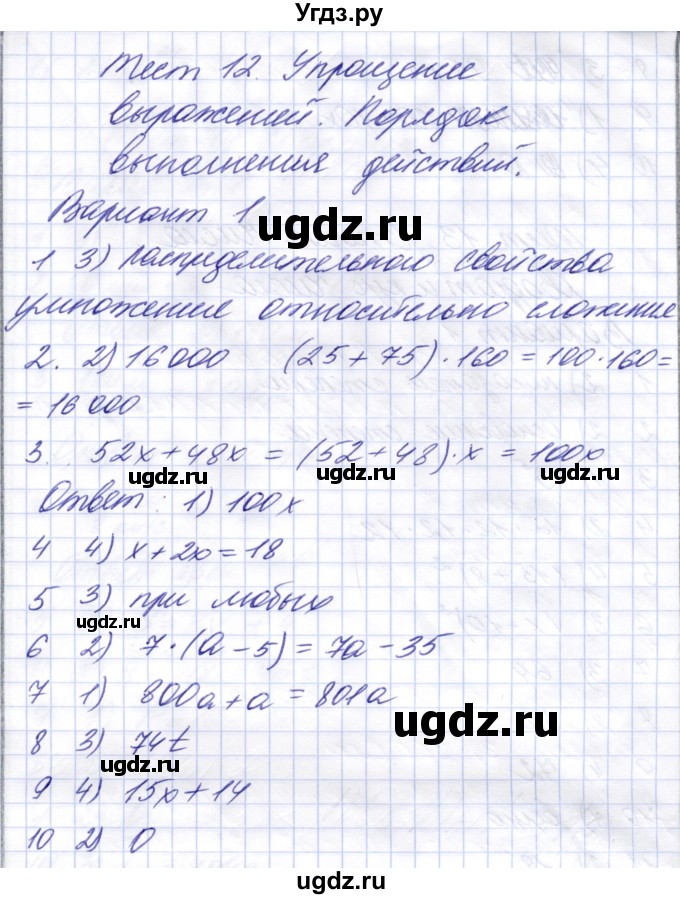 Угдз.ру
Тест 12. Упрощение
выражений. Порядок
выполнения действий.
Вариант 1
ugdz.ru
1 3) распределительного свойства
умножение относительно сложения
2. 2) 16000 (25+75)·160=100·160=
= 16 000
3. 52x+48x = (52+48)·x = 100x
ugdz.ru ugdz.ru
Ответ: 1) 100x
4 4) x+2x=18
5 3) при любых
ugdz.ru
6 2) 7·(a-5)=7a-35
7 1) 800a+a=801a
ugdz.ru
8 3) 74t
ugdz.ru
9 4) 15x+14
10 2) 0
ugdz.ru